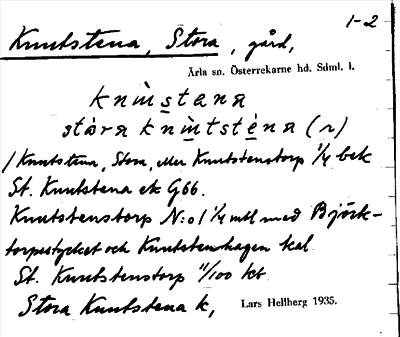 1-2
Knutstena, Stora, gård,
Ärla sn. Österrekarne hd. Sdml. l.
knù̀stana
stóra knùtsténa (r)
/ Knutstena, Stora, eller Knutstenstorp 1/4 bek
St. Knutstena ek G66.
Knutstenstorp N:o 1 1/4 mtl med Björk-
torpestycket och Knutstenshagen kal
St. Knutstenstorp 11/100 kt
Stora Knutstena k,
Lars Hellberg 1935.